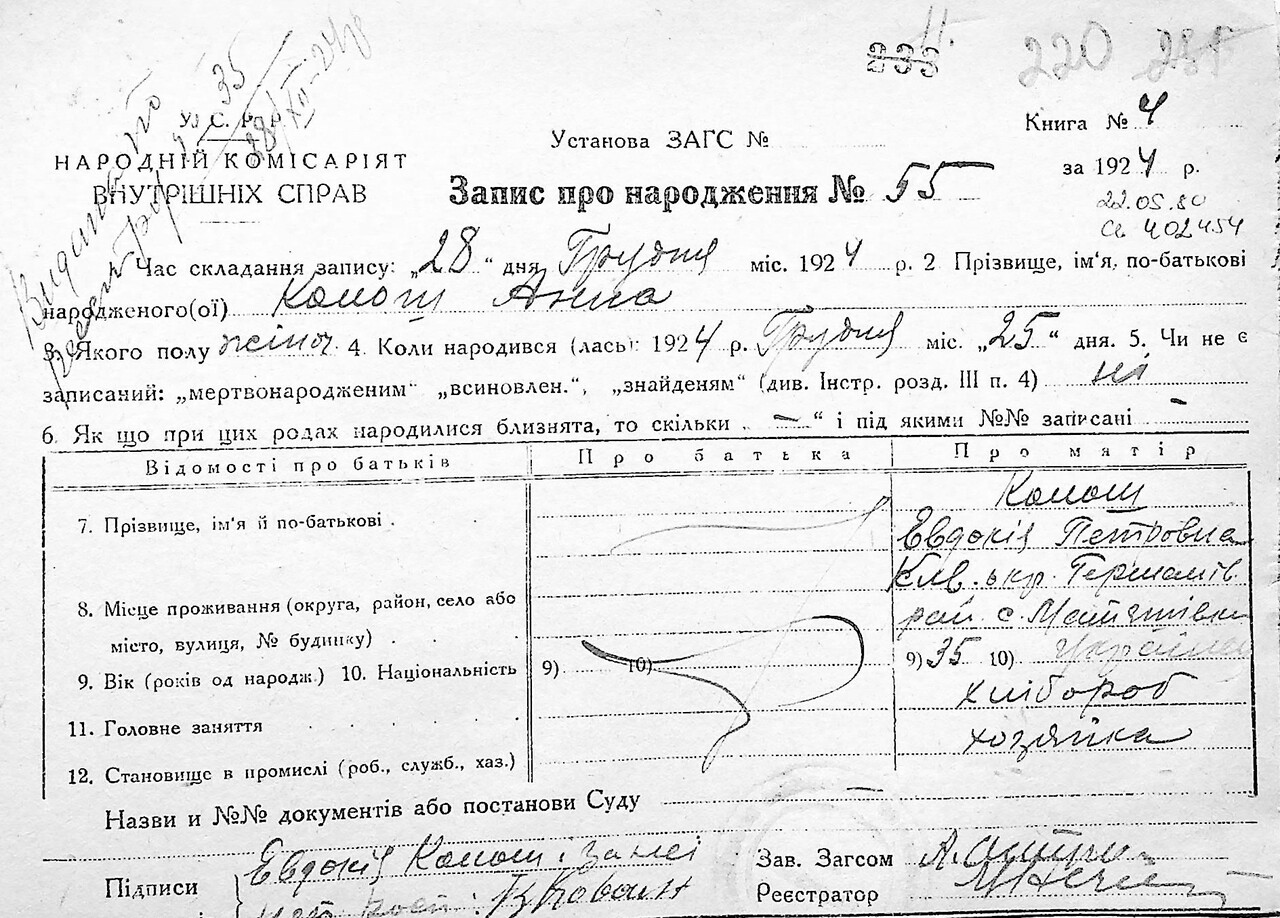 233 11.
220
Видано
35
28/XII-24р
У. С. Р. Р.
НАРОДНІЙ КОМІСАРІЯТ
ВНУТРІШНІХ СПРАВ
Установа ЗАГС №
Книга № 4
за 1924 р.
Запис про народження № 55
22.05.80
402454
Час складання запису: „28“ дня Грудня міс. 1924 р. 2 Прізвище, ім'я, по-батькові
народженого(ої) Колош Анна
3. Якого полу жіноч 4. Коли народився (лась): 1924 р. Грудня міс. „25“ дня. 5. Чи не є
записаний: „мертвонародженим“ „всиновлен.“, „знайденям“ (див. Інстр. розд. III п. 4) ні
6. Як що при цих родах народилися близнята, то скільки „ — “ і під якими №№ записані —
Відомості про батьків Про батька Про матір
7. Прізвище, ім'я й по-батькові . Колош
Евдокія Петровна
8. Місце проживання (округа, район, село або
місто, вулиця, № будинку) . .
окр.
рай с.
9. Вік (років од народж.) 10. Національність 9) 10) 9) 35 10) Українка
11. Головне заняття хлібороб
12. Становище в промислі (роб., служб., хаз.) хозяйка
Назви и №№ документів або постанови Суду
Підписи Евдокія Колош
Зав. Загсом
Реєстратор